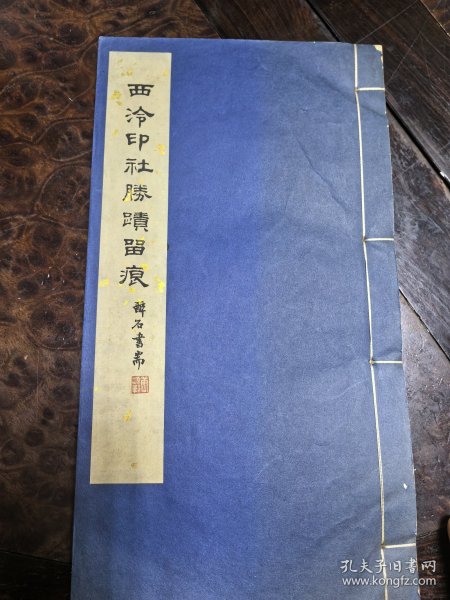 西泠印社勝蹟留痕
醉石書耑
孔夫子旧书网
www.kongfz.com